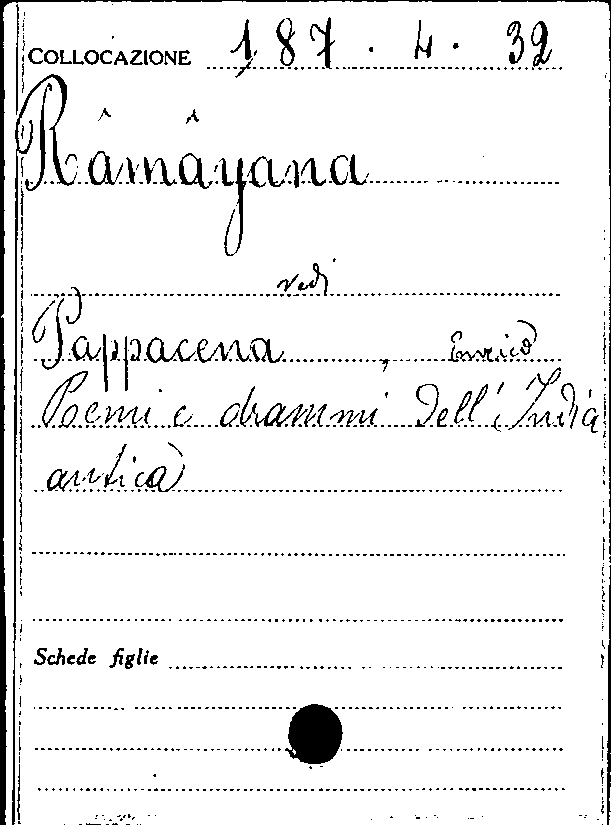 COLLOCAZIONE 187.4.32
Râmâyana
vedi
Pappacena, Enrico
Poemi e drammi dell'India
antica
Schede figlie